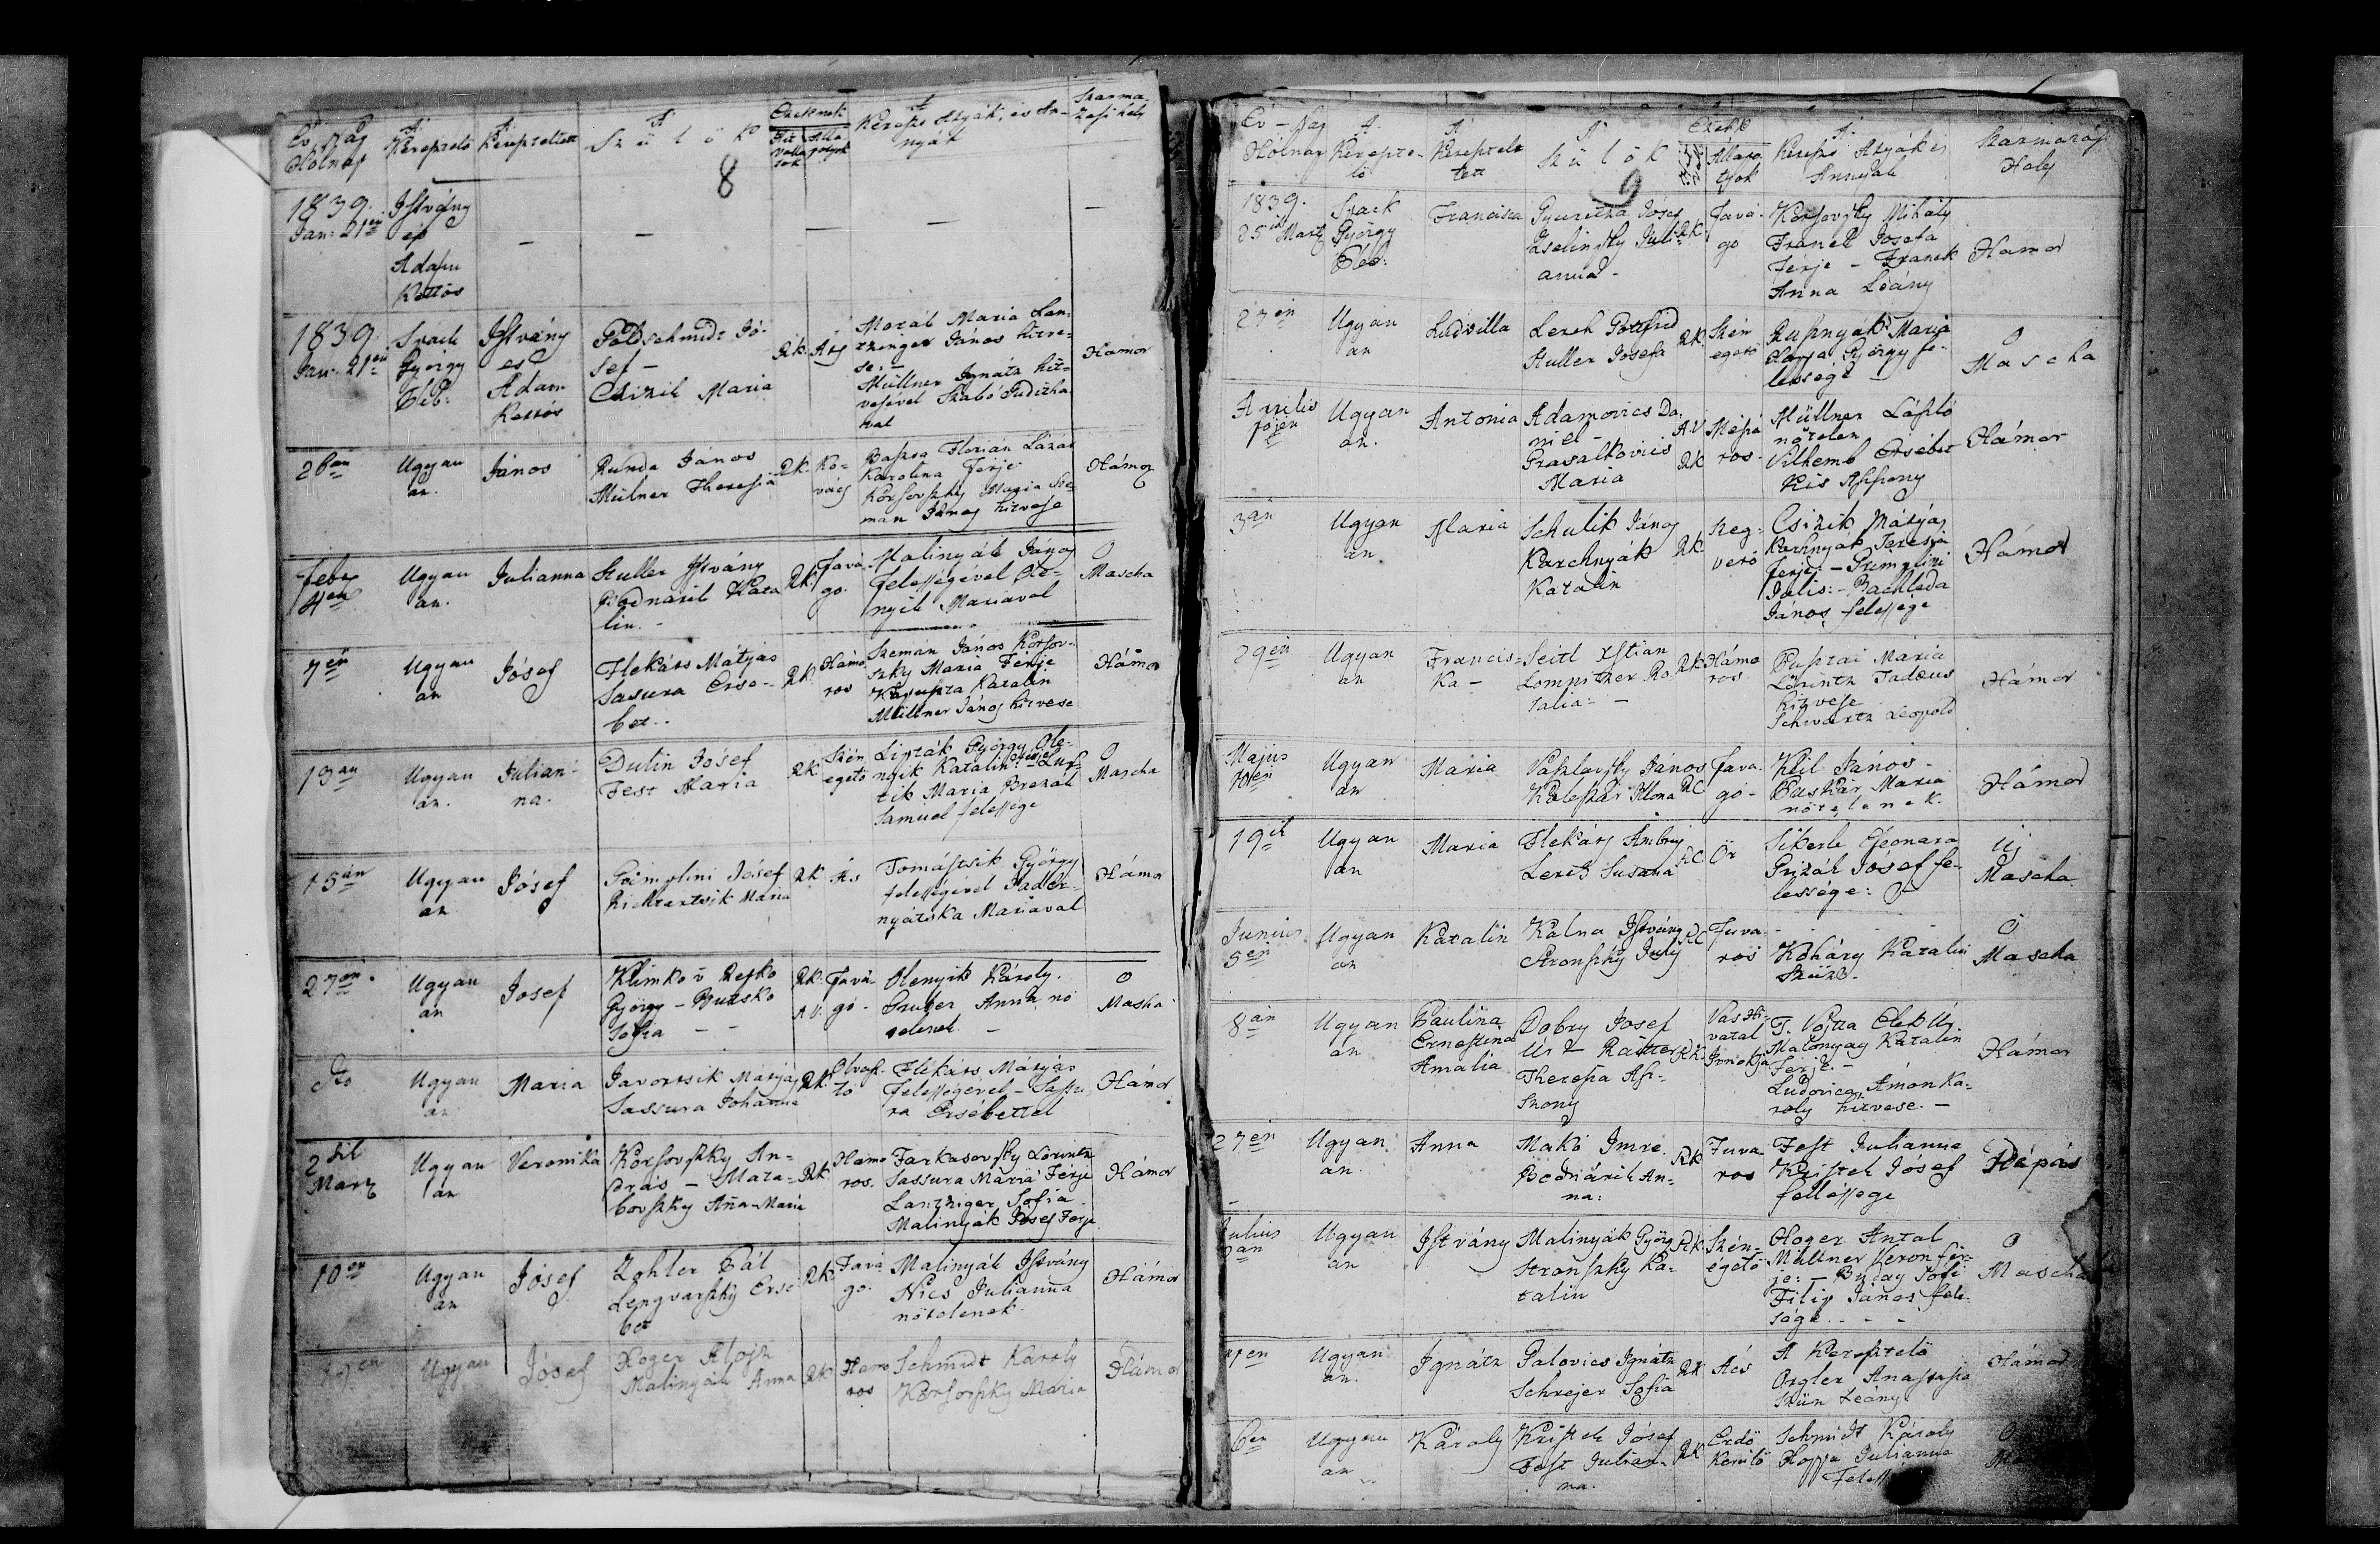 Év, nap
Hólnap
A'
Keresztelő
A'
Kereszteltett
A'
Szülők
8
Ezeknek
Hit vallások
Álla potjok
A'
Kereszt Atyák, és An-
nyák
Szarma
zási hely
1839.
Jan: 21én
István
és
Adám
Kettős
—
1839.
Jan: 21én
Svack
György
Pleb:
István
es
Adam
Kettős
Goldschmidt Jó-
sef -
Csizik Maria
RK.
Motál Maria Lan-
tzinger János hitve-
se: -
Müllner Ignátz hit-
vesével Szabó Juditha
val
Hamor
26an
Ugyan
az.
János
Runda János
Mülner Theresia
RK.
Ko-
váts
Florián Lázár
Karolina Férje
Korsovszky Maria Sze-
man János hitvese
Hámor
Febr
4en
Ugyan
az.
Julianna
Stuller István
Bodnarik Kata
lin. -
RK.
Favá
go.
Malinyák János
felességével Ole-
nyik Mariával
O
Mascha
7én
Ugyan
az
Jósef
Flekáts Mátyás
Sasura Erse-
bet..
RK.
Hámo
ros
Szemán János Korsov-
szky Maria Férje
Katalin
Müllner János hitvese
Hámor
13an
Ugyan
az.
Julian-
na.
Dulin Jósef
Fest Maria
RK
Szén
egető
Lipták György Ole-
nyik Katalin férje Lup-
tik Maria Brezál
Samuel felessége
O
Mascha
15án
Ugyan
az
Jósef
Grimplini Jósef
Richtartsik Maria
RK
Áts
Tomástsik György
felességével Padler-
nyátska Mariával
Hámor
27én
Ugyan
az
Josef
Klimko v Repko
György - Butsko
Sofia - -
RK.
A.V.
Favá-
gó -
Olenyik Károly.
Gruber Anna nö
telenek. -
O
Masha
Ugyan
az
Maria
Javortsik Mátyás
Sassura Johanna
RK.
Olvasz-
tó
Flekáts Mátyás
felességével - Sassu
ra Ersébettel
Hámor
2dik
Martz
Ugyan
az
Veronika
Korsovszky An-
drás - Mata-
bovszky Aña-Mariá
RK.
Hámo
ros.
Farkasovszky Lőrintz
Sassura Mariá Férje
Lantziger Sofia
Malinyák Jósef Férje
Hámor
10en
Ugyan
az
Jósef
Zohler Pál
Lengvarszky Erse
bet
RK.
Favá
go.
Malinyák István
Nics Julianna
nötelenek.
Hámor
Ugyan
Jósef
Hoger Alojz
Malinyák Anna
RK
Hamo
ros
Schmidt Karoly
Korsovszky Maria
Hámor
Év - Nap
Hólnap
A.
Kereszte-
lő
A'
Keresztel-
tett
A'
Szülők
9
Ezek
Állapo
tjok
A'
Kereszt Atyák és
Annyák
Szarmazás
Hely
1839.
25ik Martz
Svack
György
Pleb:
Francisca
Gyuricza Jósef
Zselinszky Juli-
anna -
RK
Favá-
go
Korsovszky Mihály
Franek Josefa
férje - Franek
Anna Leány
Hamor
27én
Ugyan
az
Ludvilla
Lerch Gottfrid
Stuller Josefa
RK.
Szén
egető
Rusnyák Maria
Hanja György fe-
lessége -
O
Mascha
Aprilis
Ugyan
az.
Antonia
Adamovics Da-
niel -
Grasalkovics
Maria
A.V.
RK
Mészá
ros.
Müllner László
nötelen
Vilhemb Ersébet
Kis Asszony
Hámor
3án
Ugyan
az
Maria
Schulik János
Karchnyák
Katalin
RK.
Szeg-
verő
Csizik Mátyás
Karhnyák Teresia
férje - Grimplini
Julis: - Bachleda
János felessége
Hámor
29én
Ugyan
az
Francis-
ka -
Seitl Xstian
Lompitzer Ro-
salia: -
RK
Hámo
ros
Pusztai Maria
Lörintz Tadæus
hitvese
Schwartz Leopold
Hámor
Majus
Ugyan
az
Maria
Vaszlavszky Janos
Kaleskar Illona
RC
Fava-
gó -
Kail János -
Puskár Maria
nötelenek.
Hámor
19ik
Ugyan
az
Maria
Flekáts Ambrus
Lerch Susana
RC
Ör
Sikerle Eleonara
Prizák Jósef fe-
lessége: -
Uj
Mascha
Junius
5én
Ugyan
az
Katalin
Kalna István
Stronszky July
RC
Fuva-
ros
- - - -
Koháry Katalin
Szüz.
O
Mascha
8án
Ugyan
az
Paulina
Ernestina
Amalia
Dobry Josef
Úr - Rätter
Theresia Asz-
szony
RK.
Vas Hi-
vatal
Irnokja
T. Vojta Elek Ur
Matonyay Katalin
Férje. -
Ludovica Ámon Ka-
roly hitvese. -
Hámor
27én
Ugyan
az.
Anna
Makó Imre
Bodnárik An-
na:
RK
Fuva-
ros
Fest Julianna
Kristek Jósef
fellessege
Répás
Julius
Ugyan
az
István
Malinyák György
Stronszky Ka-
talin
RK.
Szén-
égető
Hoger Antal
Müllner Veron fér-
je: - Sofi
Filip Janos fele-
sége. - -
O
Mascha
Ugyan
az.
Ignátz
Palovics Ignátz
Schrejer Sofia
RK
Ács
A Keresztelő
Orgler Anastasia
Szüz Leány
Hámor
6én
Ugyan
az
Károly
Kristek Jósef
Fest Julian-
na.
RK
Erdö
Kerülö
Schmidt Károly
Hoppa Julianna
Feless
O